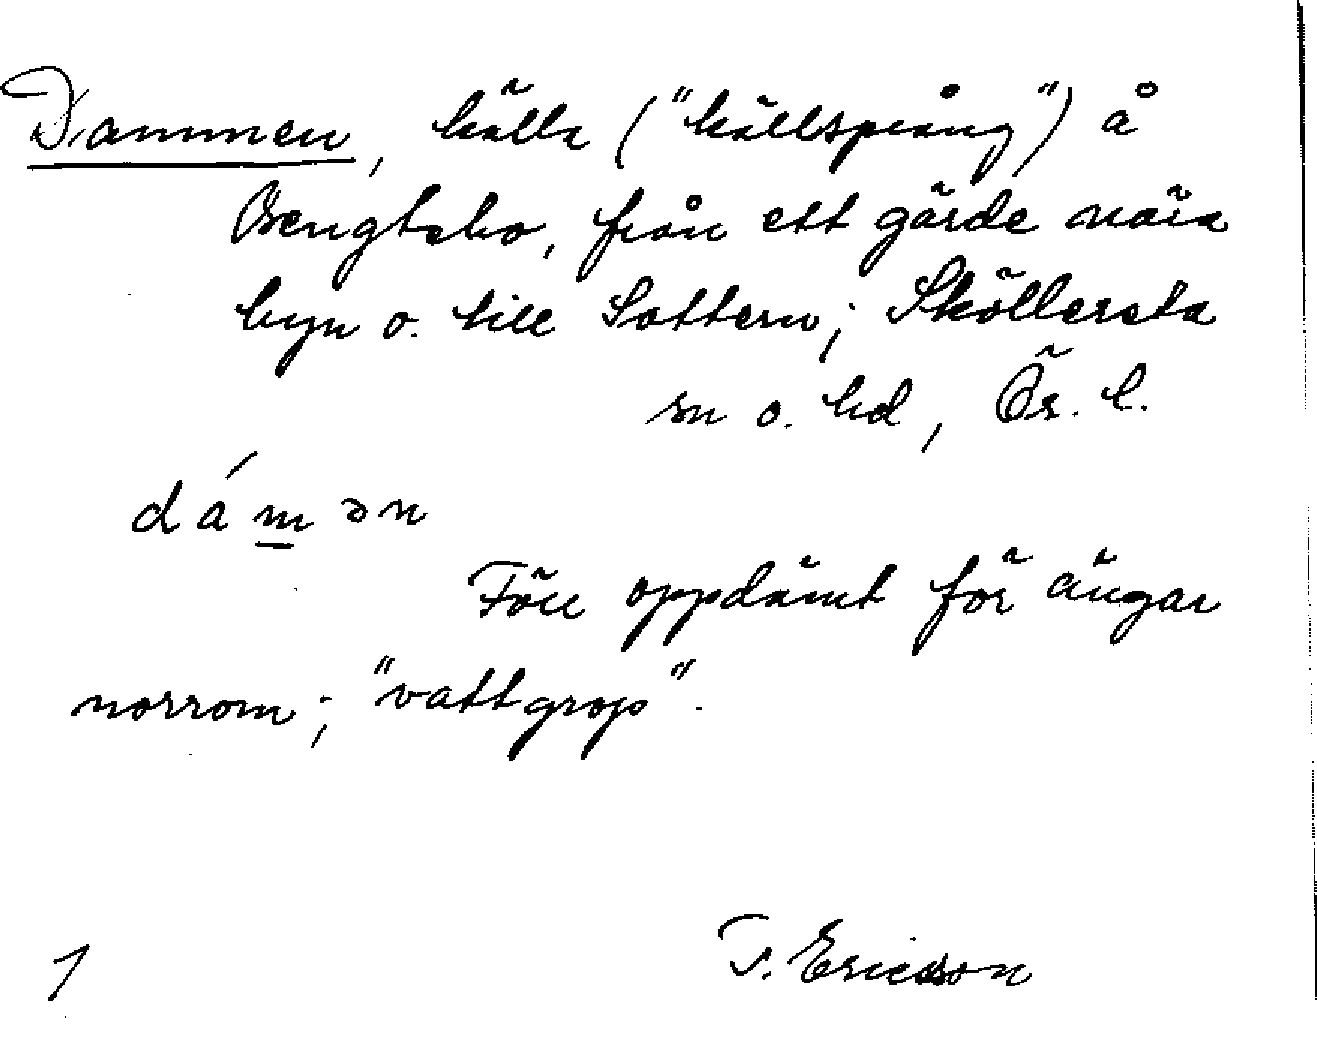 Dammen, källa ("källsprång") å
Bengtsbo, från ett gärde nära
byn o. till Sottern; Sköllersta
sn o. hd, Ör. l.
dámən
Förr oppdämt för ängar
norrom; "vattgrop".
T. Ericsson
1